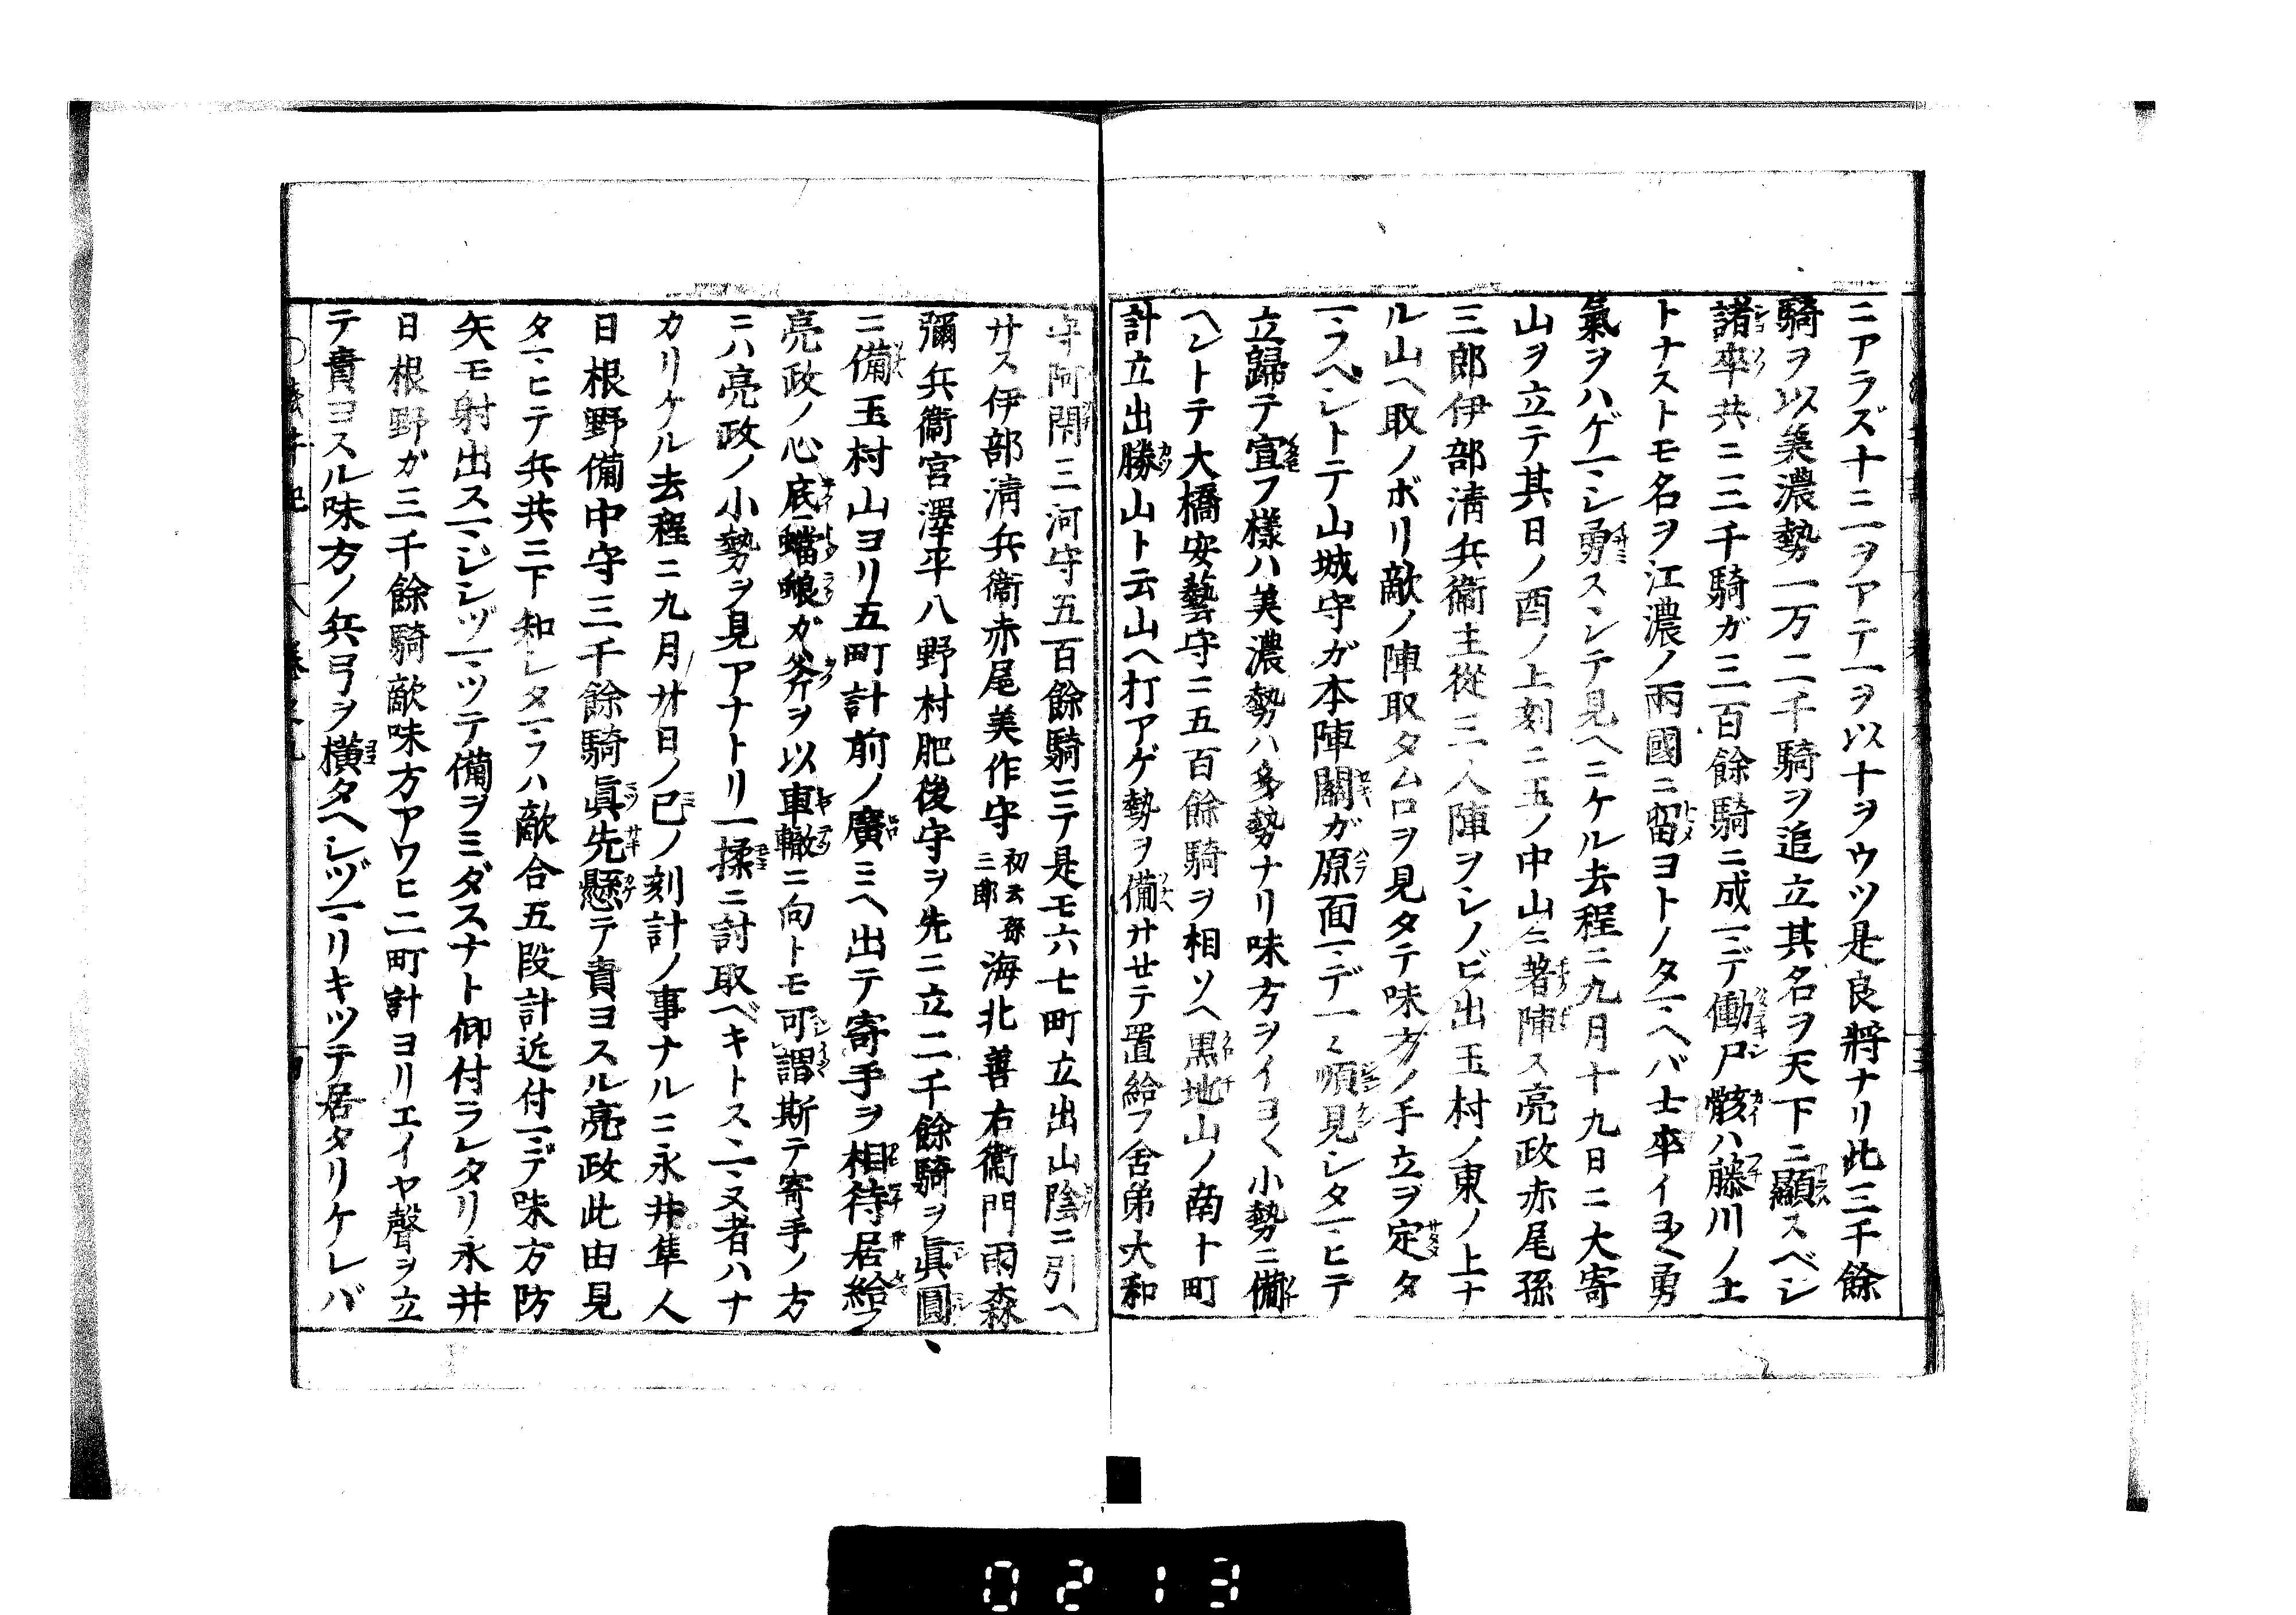 ニアラズ十ニ一ヲアテ一ヲ以十ヲウツ是良將ナリ此三千餘
騎ヲ以美濃勢一万二千騎ヲ追立其名ヲ天下ニ顯スベシ
諸卒共ニ三千騎ガ三百餘騎ニ成マデ働尸骸ハ藤川ノ土
トナストモ名ヲ江濃ノ兩國ニ留ヨトノタマヘバ士卒イヨ〱勇
氣ヲハゲマシ勇スンテ見ヘニケル去程ニ九月十九日ニ大寄
山ヲ立テ其日ノ酉ノ上刻ニ玉ノ中山ニ著陣ス亮政赤尾孫
三郎伊部淸兵衞主從三人陣ヲシノビ出玉村ノ東ノ上ナ
ル山ヘ取ノボリ敵ノ陣取タムロヲ見タテ味方ノ手立ヲ定タ
マフヘシトテ山城守ガ本陣關ガ原面マデ一〻順見シタマヒテ
立歸テ宣フ樣ハ美濃勢ハ多勢ナリ味方ヲイヨ〱小勢ニ備
ヘントテ大橋安藝守ニ五百餘騎ヲ相ソヘ黒地山ノ南十町
計立出勝山ト云山ヘ打アゲ勢ヲ備サセテ置給フ舍弟大和
守阿閉三河守五百餘騎ニテ是モ六七町立出山陰ニ引ヘ
サス伊部淸兵衞赤尾美作守初云孫三郎海北善右衞門雨森
彌兵衞宮澤平八野村肥後守ヲ先ニ立二千餘騎ヲ眞圓
ニ備玉村山ヨリ五町計前ノ廣ミヘ出テ寄手ヲ相待居給フ
亮政ノ心底蟷螂ガ斧ヲ以車轍ニ向トモ可謂斯テ寄手ノ方
ニハ亮政ノ小勢ヲ見アナトリ一揉ニ討取ベキトスヽマヌ者ハナ
カリケル去程ニ九月廿日ノ巳ノ刻計ノ事ナルニ永井隼人
日根野備中守三千餘騎眞先懸テ責ヨスル亮政此由見
タマヒテ兵共ニ下知シタマフハ敵合五段計近付マデ味方防
矢モ射出スマジシヅマツテ備ヲミダスナト仰付ラレタリ永井
日根野ガ三千餘騎敵味方アワヒ二町計ヨリエイヤ聲ヲ立
テ責ヨスル味方ノ兵弓ヲ橫タヘシヅマリキツテ居タリケレバ
0213